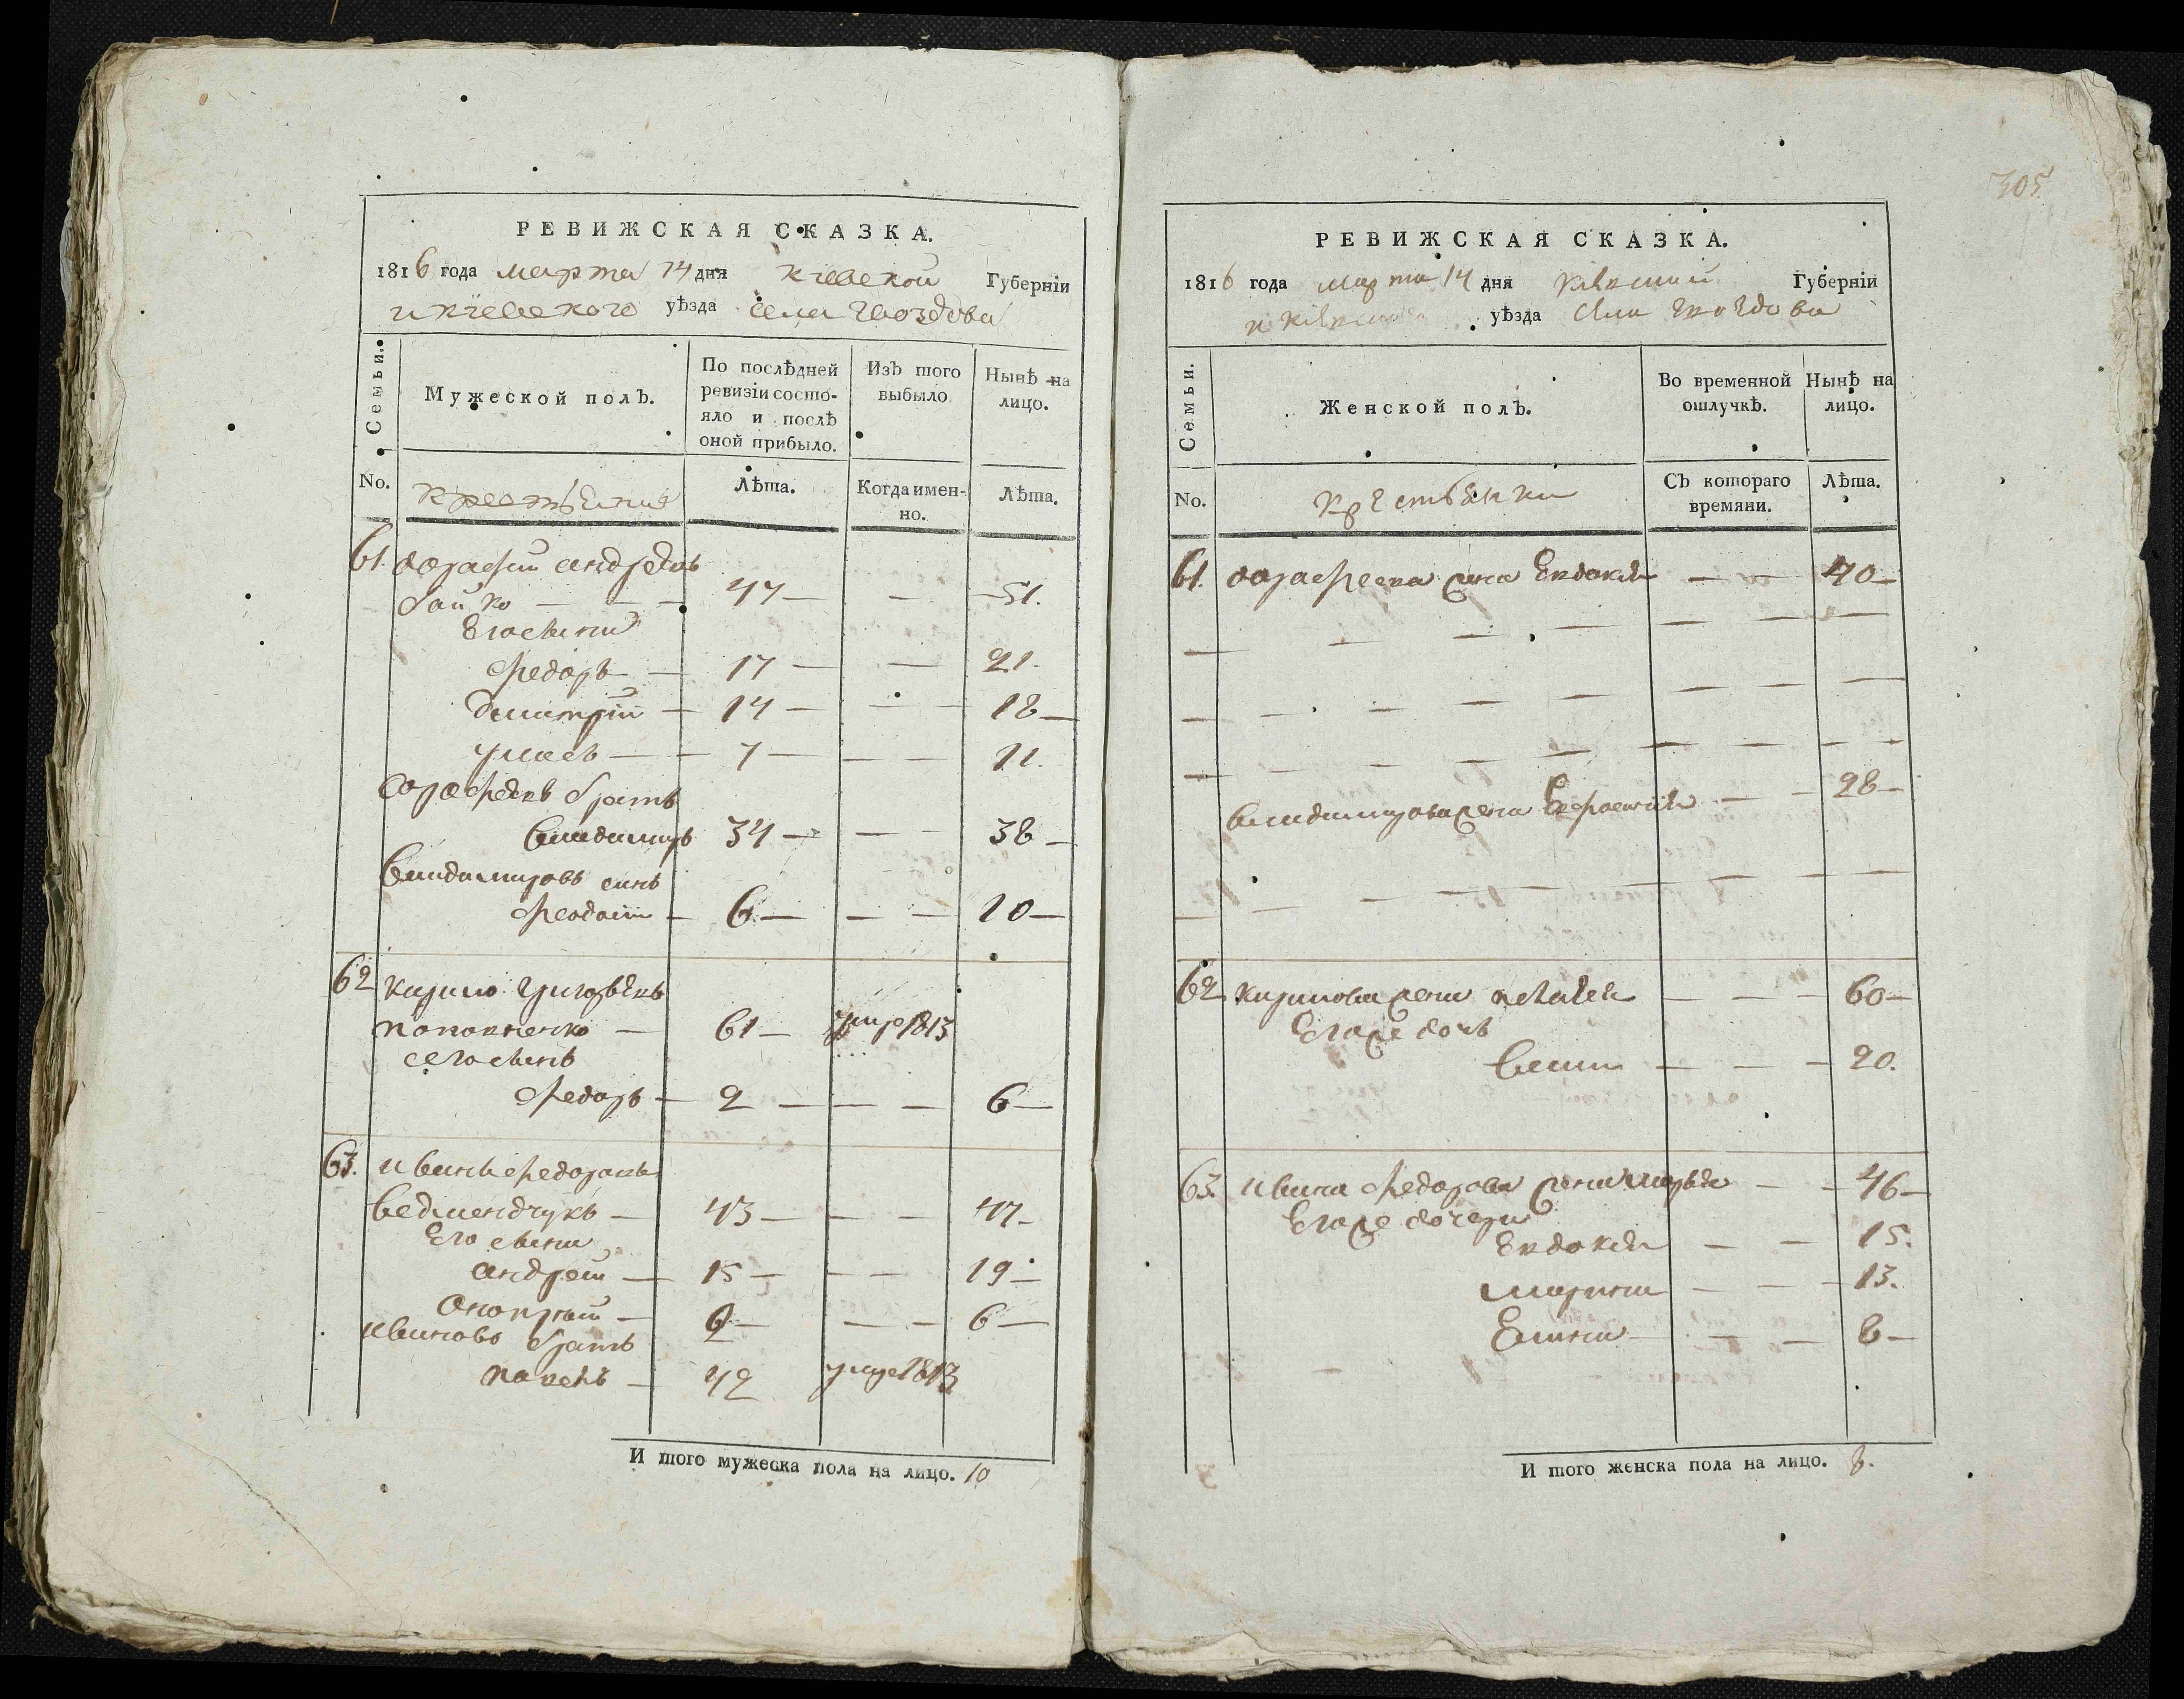 305
РЕВИЖСКАЯ СКАЗКА.
1816 года марта 14 дня кіевской Губерніи
и кіевского уѣзда села Гвоздова
Семьи.
Мужеской полъ.
По послѣдней ревизіи состо-
яло и послѣ
оной прибыло.
Изъ того
выбыло.
Нынѣ на
лицо.
No.
крестьяния
Лѣта.
Когда имен-
но.
Лѣта.
61. андреевъ
байко 47 51.
Его сыни
Федоръ 17 21.
Дмитрій 14 18
7 11.
братъ
Владимиръ 34 38
Владимировъ синъ
Феодосій 6 10
62 Кирило Григорьевъ
61 умре 1813
его сынъ
Федоръ 2 6
63. Иванъ Федоровъ
Ведмендчукъ 43 47
Его сыни
Андрей 15 19
Онопрій 2 6
Ивановъ братъ
42 умре 1813
И того мужеска пола на лицо. 10
РЕВИЖСКАЯ СКАЗКА.
1816 года марта 14 дня кіевской Губерніи
и кіевского уѣзда села Гвоздова
Семьи.
Женской полъ.
Во временной
отлучкѣ.
Нынѣ на
лицо.
No.
крестьянки
Съ котораго
времяни.
Лѣта.
61. жена Евдокія 40
Владимирова жена Евфросинія 28
62 Кирилова жена Пелагея 60
Его же дочь
20.
63. Ивана Федорова жена Марья 46
Его же дочери
Евдокія 15.
Марина 13.
Елена 8
И того женска пола на лицо. 8.